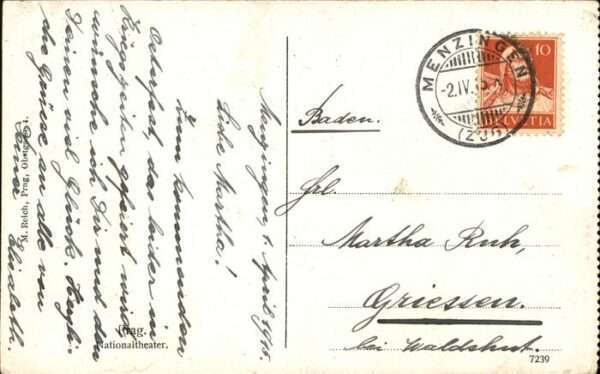 Menzingen, 1. April 1915.
Liebe Martha!
Zum kommenden
Osterfest, das leider in
Kriegszeiten gefeiert wird,
wünsche ich Dir und den
Deinen viel Glück. Herzli-
che Grüsse an alle von
Elisabeth.
M. Reich, Prag, Obstgasse 4.
Prag.
Nationaltheater.
MENZINGEN
-2.IV.15
(ZUG)
10
HELVETIA
Baden.
Frl.
Martha Ruh,
Griessen.
bei Waldshut.
7239